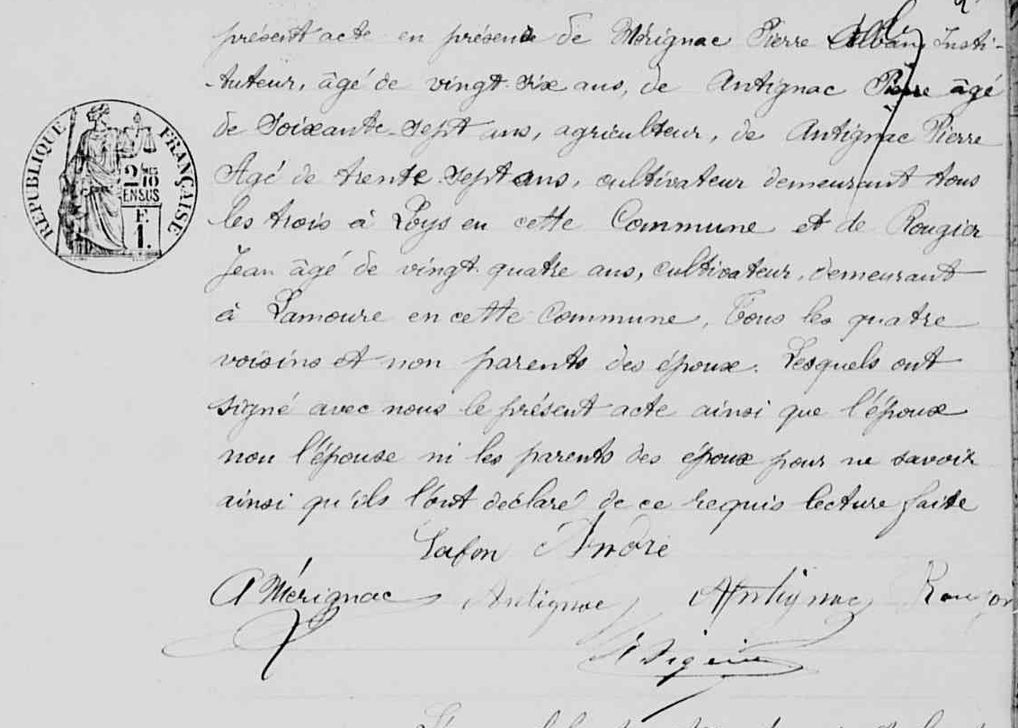 présent acte en présence de Mérignac Pierre Alban, Insti-
-tuteur, âgé de vingt-six ans, de Antignac Pierre âgé
de soixante sept ans, agriculteur, de Antignac Pierre
Agé de trente sept ans, cultivateur demeurant tous
les trois à Loys en cette Commune et de Rougier
Jean âgé de vingt-quatre ans, cultivateur, demeurant
à Lamoure en cette Commune, Tous les quatre
voisins et non parents des époux. Lesquels ont
signé avec nous le présent acte ainsi que l'époux
non l'épouse ni les parents des époux pour ne savoir
ainsi qu'ils l'ont déclaré de ce requis lecture faite
RÉPUBLIQUE FRANÇAISE
2/10
EN SUS
F.
1.
Lafon André
A Mérignac Antignac Antignac